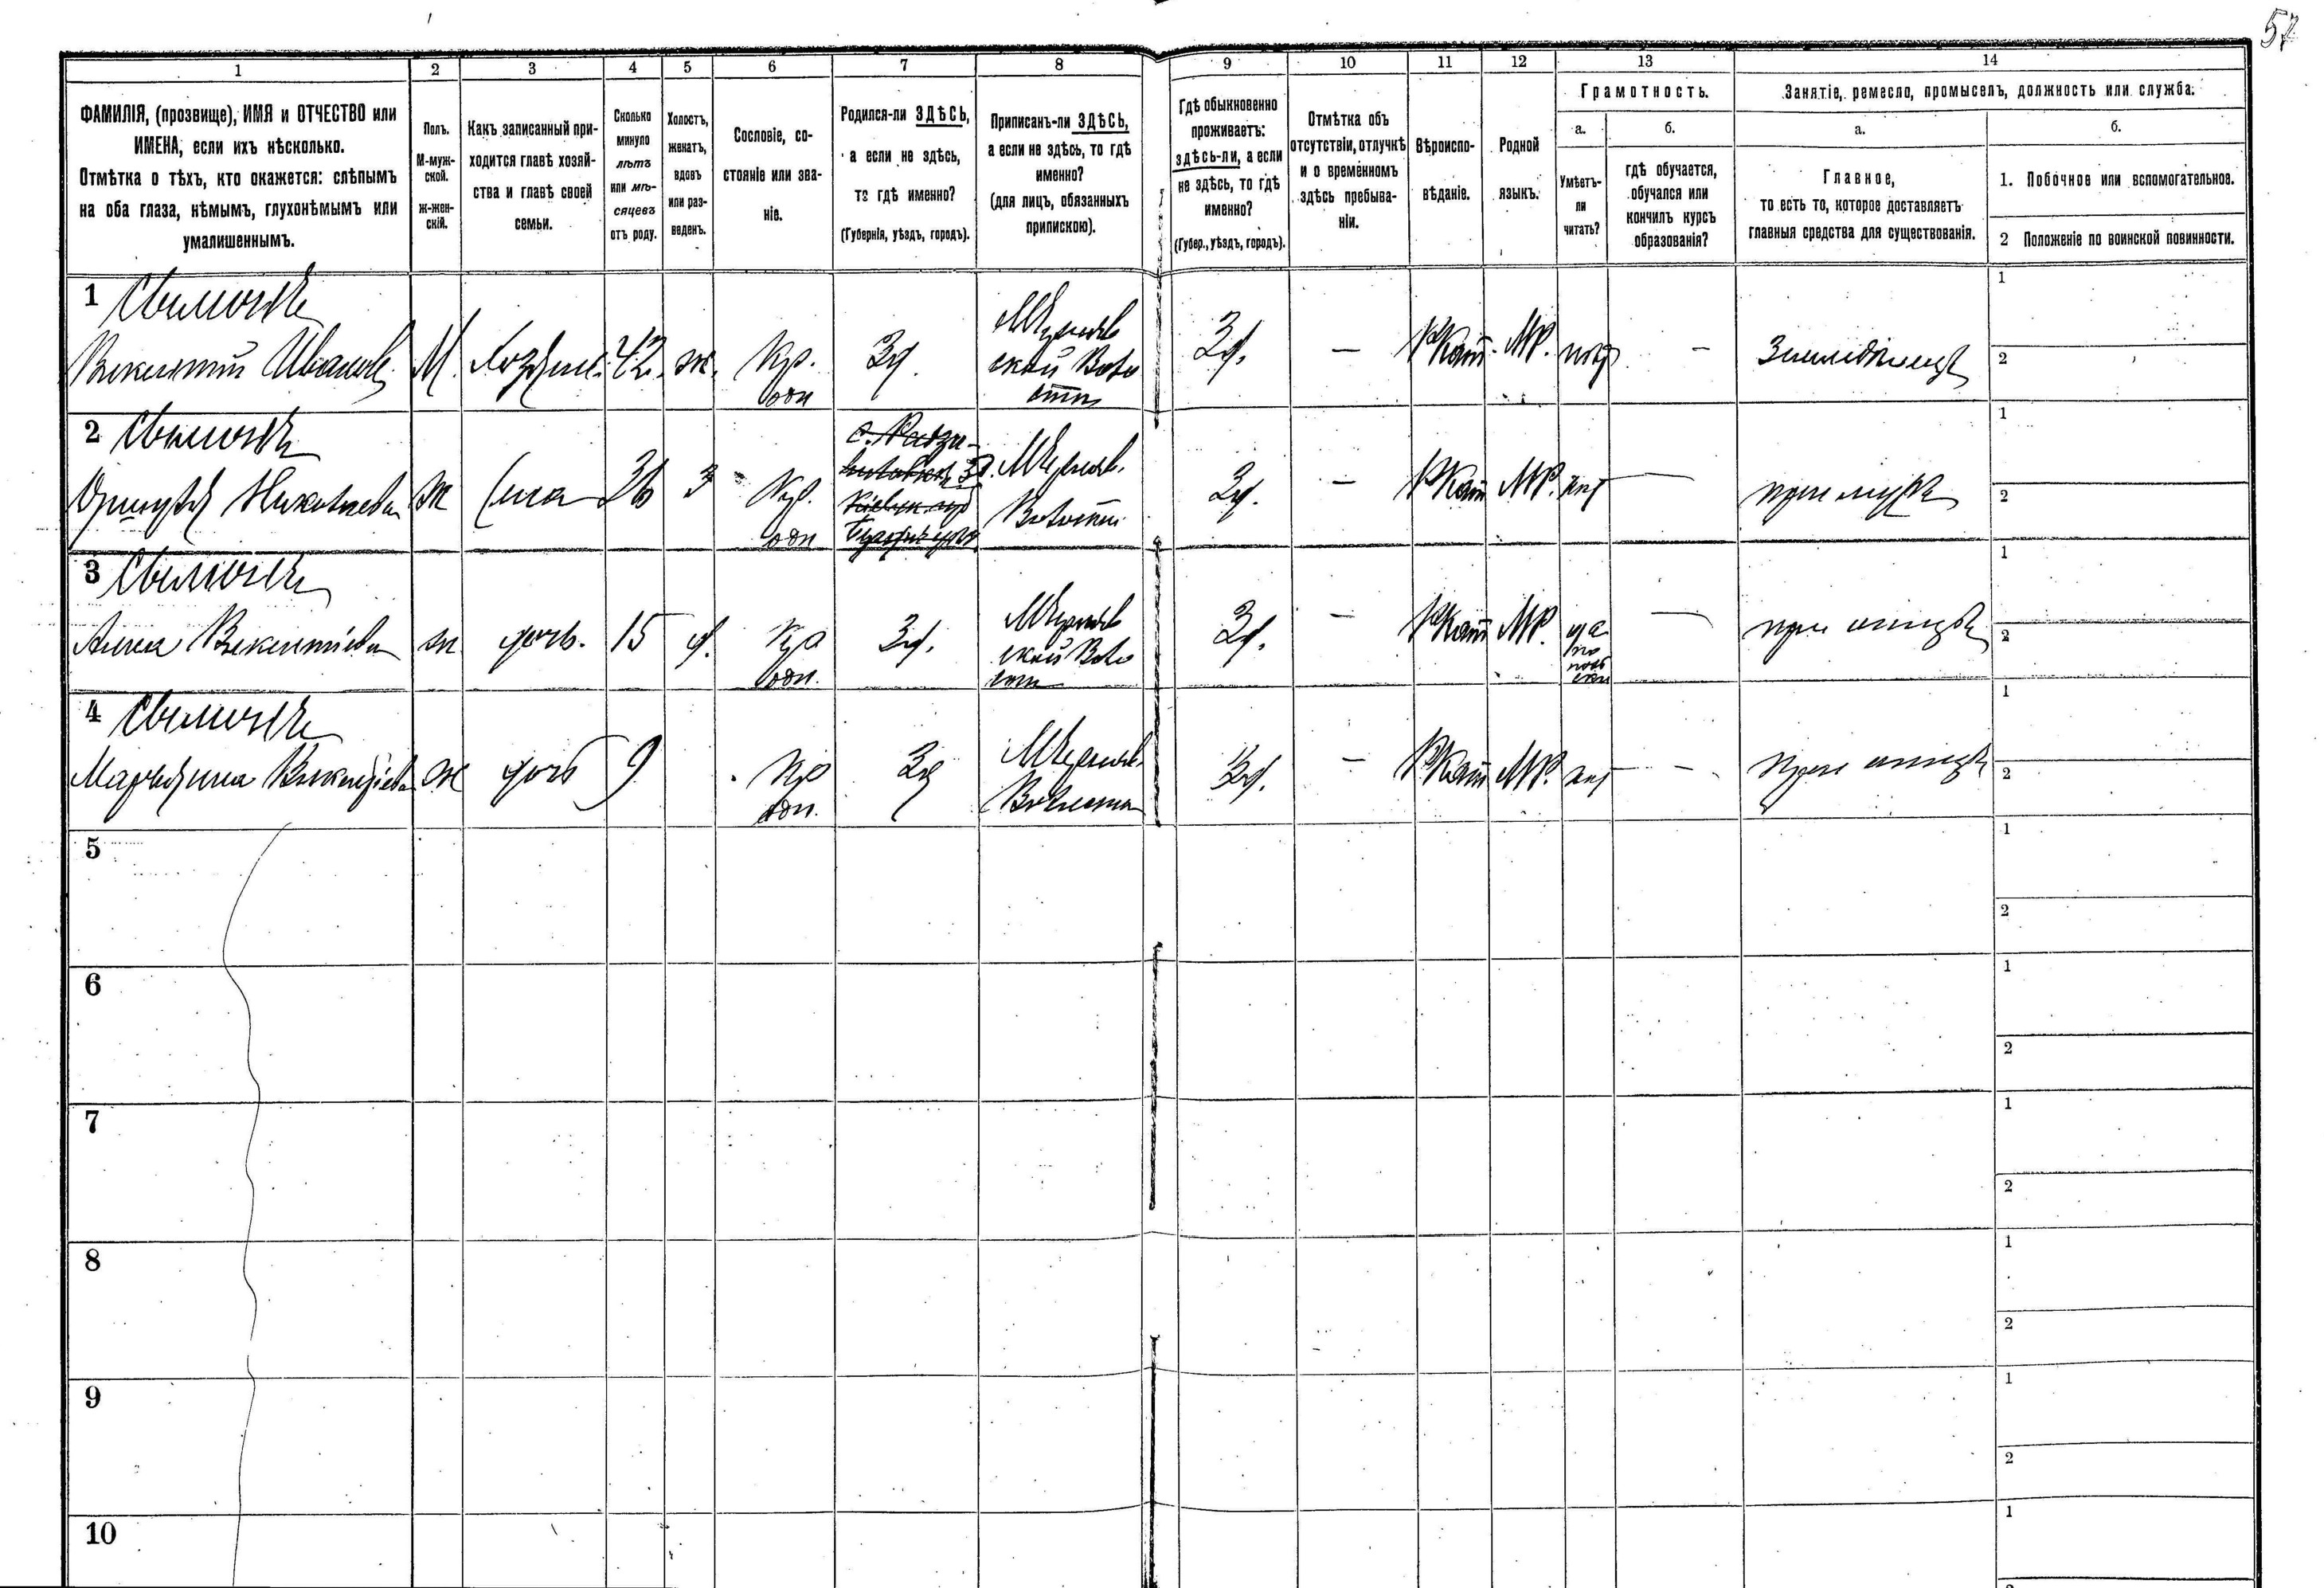 57
1
2
3
4
5
6
7
8
9
10
11
12
13
14
ФАМИЛІЯ, (прозвище), ИМЯ и ОТЧЕСТВО или
ИМЕНА, если ихъ нѣсколько.
Отмѣтка о тѣхъ, кто окажется: слѣпымъ
на оба глаза, нѣмымъ, глухонѣмымъ или
умалишеннымъ.
Полъ.
М-муж-
ской.
ж-жен-
скій.
Какъ записанный при-
ходится главѣ хозяй-
ства и главѣ своей
семьи.
Сколько
минуло
лѣтъ
или мѣ-
сяцевъ
отъ роду.
Холостъ,
женатъ,
вдовъ
или раз-
веденъ.
Сословіе, со-
стояніе или зва-
ніе.
Родился-ли ЗДѢСЬ,
а если не здѣсь,
то гдѣ именно?
(Губернія, уѣздъ, городъ).
Приписанъ-ли ЗДѢСЬ,
а если не здѣсь, то гдѣ
именно?
(для лицъ, обязанныхъ
припискою).
Гдѣ обыкновенно
проживаетъ:
здѣсь-ли, а если
не здѣсь, то гдѣ
именно?
(Губер., уѣздъ, городъ).
Отмѣтка объ
отсутствіи, отлучкѣ
и о временномъ
здѣсь пребыва-
ніи.
Вѣроиспо-
вѣданіе.
Родной
языкъ.
Грамотность.
а.
Умѣетъ-
ли
читать?
б.
гдѣ обучается,
обучался или
кончилъ курсъ
образованія?
Занятіе, ремесло, промыселъ, должность или служба.
а.
Главное,
то есть то, которое доставляетъ
главныя средства для существованія.
б.
1. Побочное или вспомогательное.
2 Положеніе по воинской повинности.
1
Викентій Иванов
М.
Хозяин.
42.
ж.
Кр.
Зд.
ской Воло
сти
Зд.
—
РКат.
МР.
нѣт
—
Земледѣлец
1
2
2
Николаева
ж
жена
26
З
Кр.
Волости
Зд.
—
РКат
МР.
нѣт
—
при мужѣ
1
2
3
Анна Викентіева
ж
дочь.
15
д.
Кр
Зд.
ской Воло
сти
Зд.
—
РКат
МР.
да
по
поль
ски
—
при отцѣ
1
2
4
Марцелина Викентіева
ж
дочь
9
Кр
Зд
Волости
Зд.
—
РКат
МР.
нѣт
—
при отцѣ
1
2
5
1
2
6
1
2
7
1
2
8
1
2
9
1
2
10
1